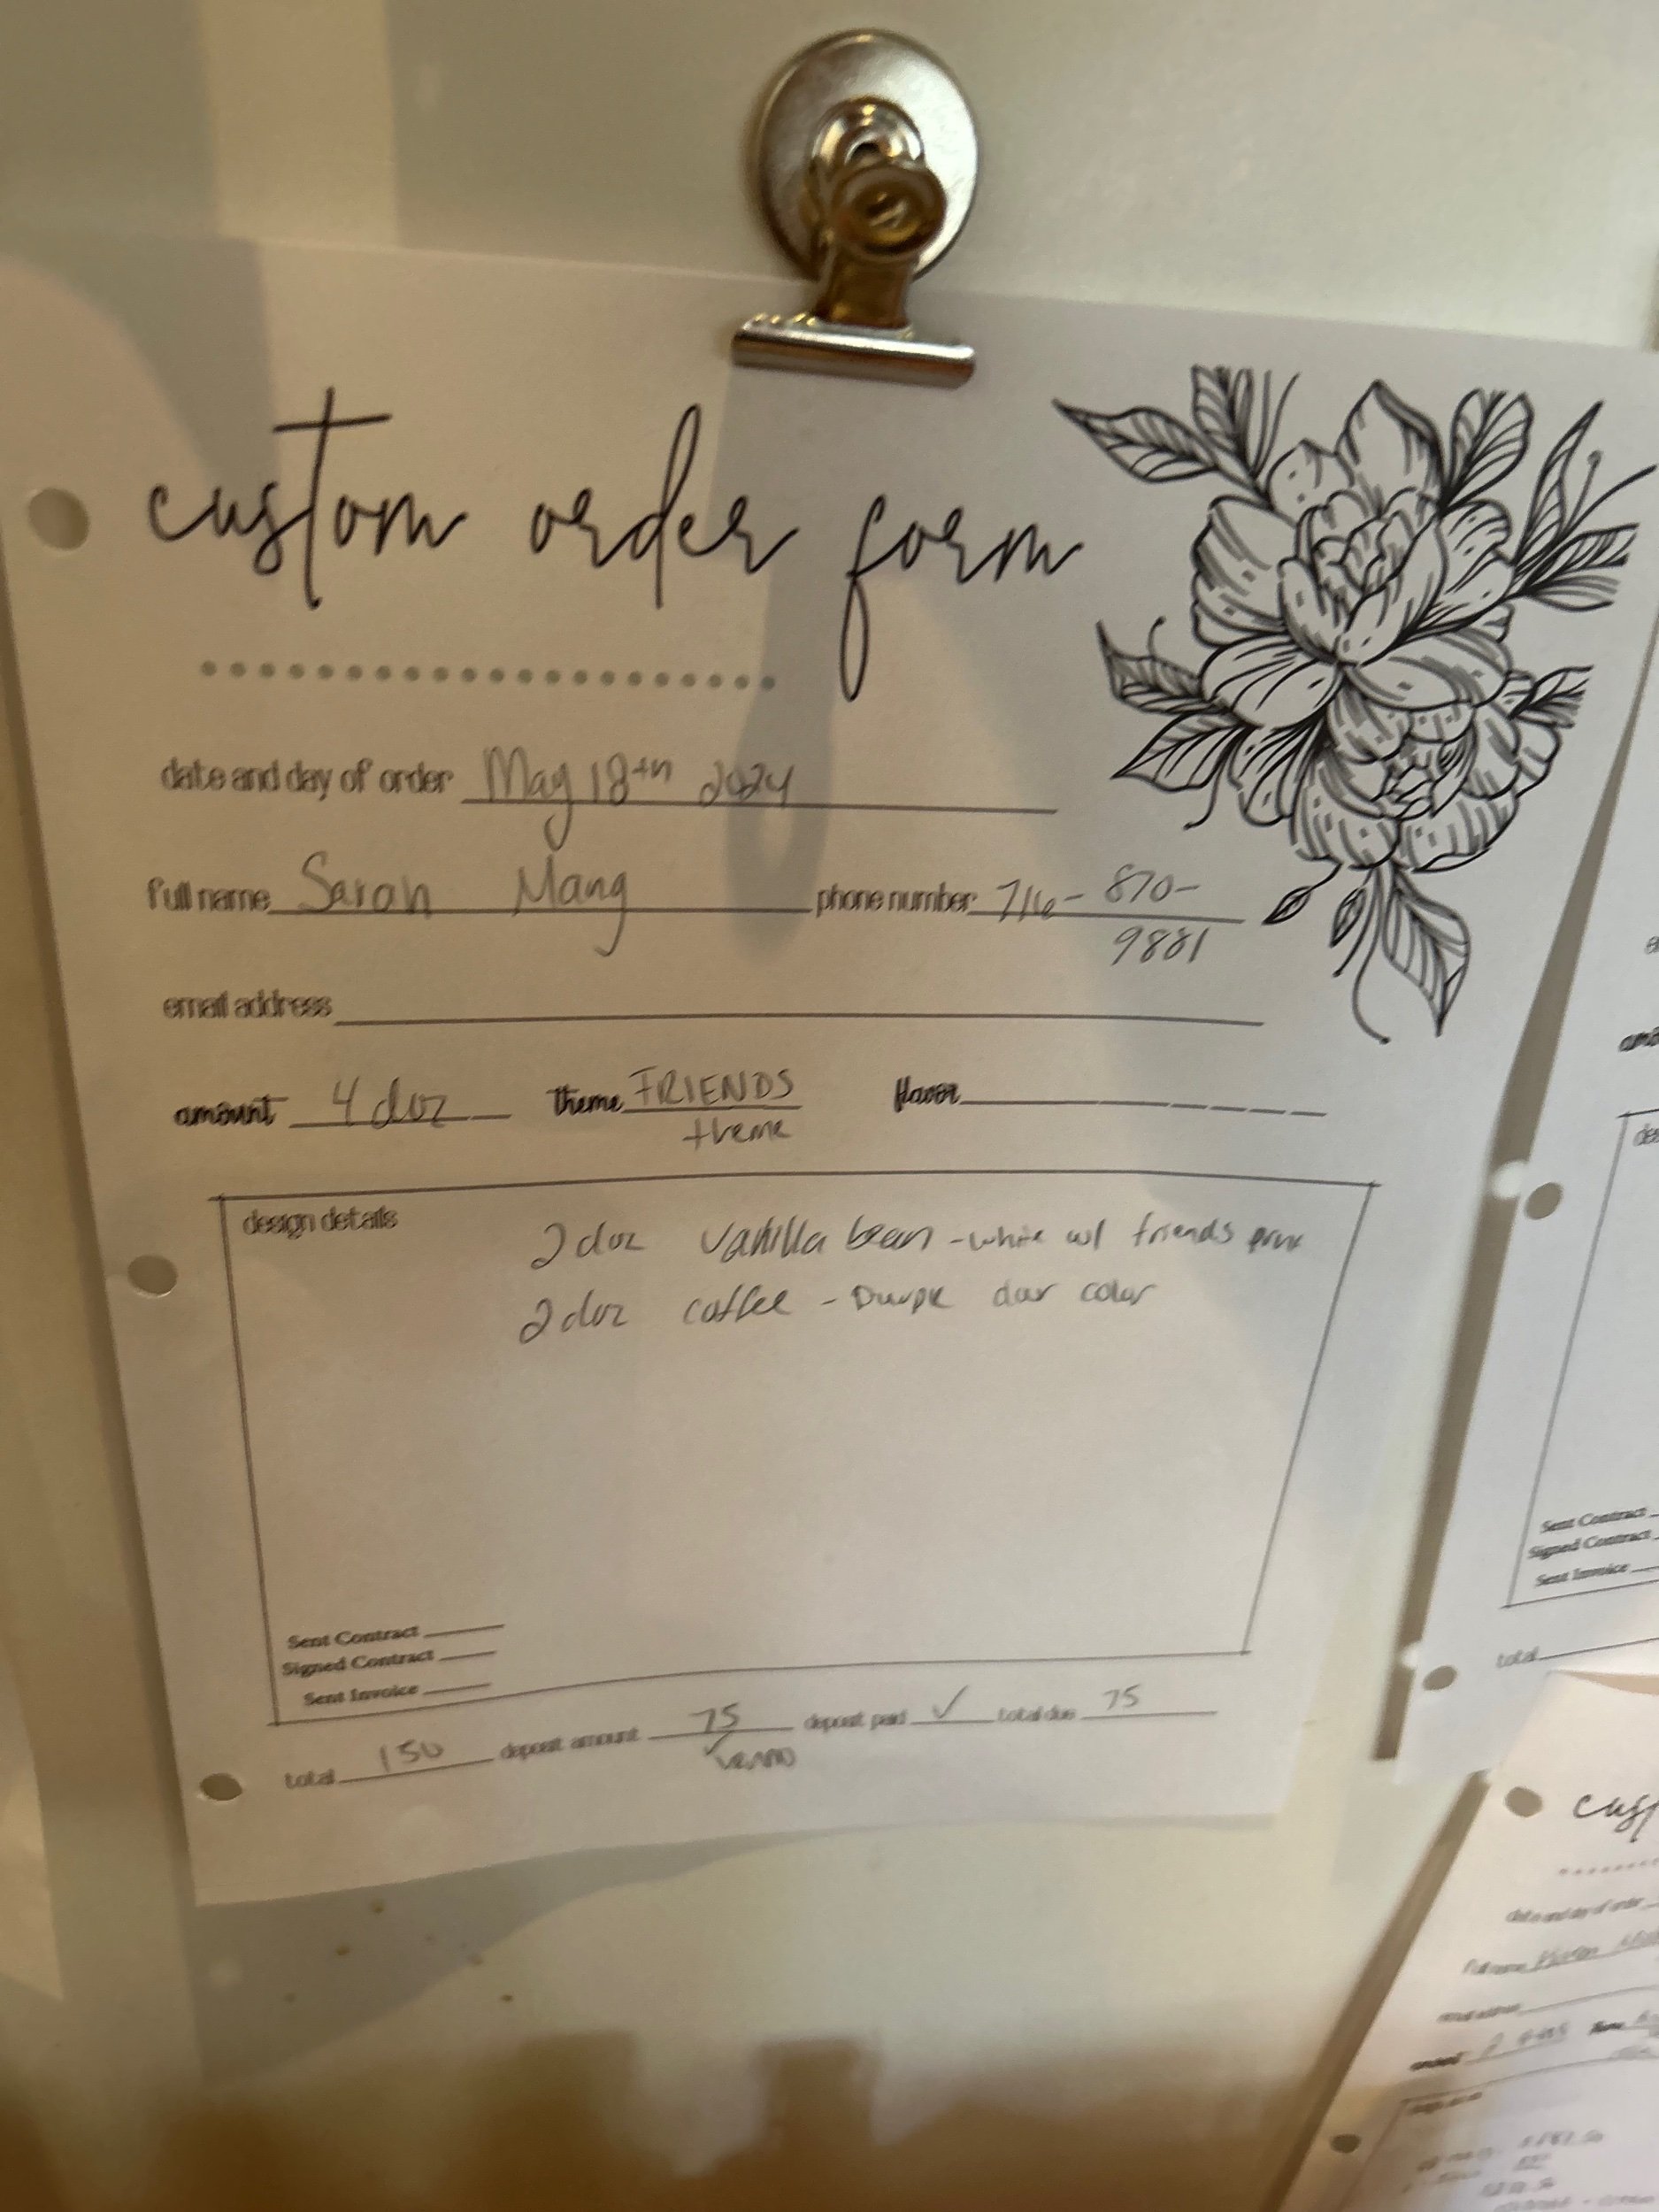 custom order form
date and day of order May 18th 2024
full name Sarah Mang phone number 716-870-
9881
email address
amount 4 doz theme FRIENDS flavor
theme
design details
2 doz vanilla bean - white w/ friends
2 doz coffee - color
Sent Contract
Signed Contract
Sent Invoice
total 150 deposit amount 75 deposit paid ✓ total due 75
venmo
Sent Contract
Signed Contract
Sent Invoice
total
cus
date and day of order
full name
email address
amount